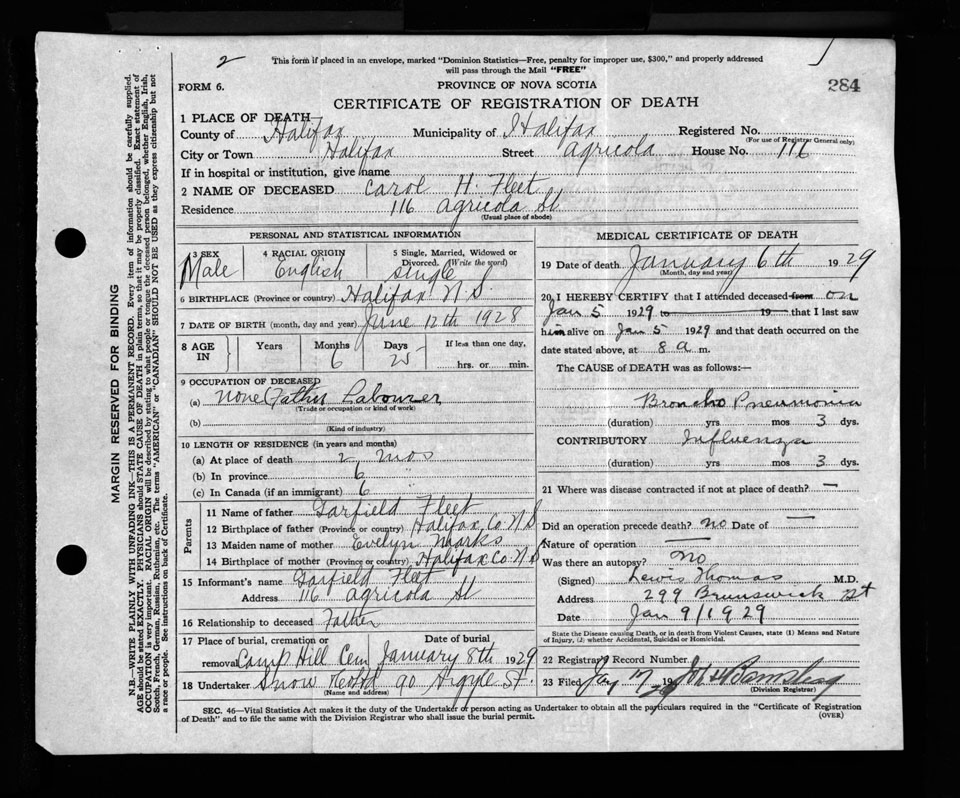 2
This form if placed in an envelope, marked "Dominion Statistics—Free, penalty for improper use, $300," and properly addressed
will pass through the Mail "FREE"
FORM 6.
PROVINCE OF NOVA SCOTIA
284
CERTIFICATE OF REGISTRATION OF DEATH
1 PLACE OF DEATH
County of Halifax Municipality of Halifax Registered No.
(For use of Registrar General only)
City or Town Halifax Street Agricola House No. 116
If in hospital or institution, give name
2 NAME OF DECEASED Carol H. Fleet
Residence 116 Agricola St
(Usual place of abode)
PERSONAL AND STATISTICAL INFORMATION
3 SEX Male
4 RACIAL ORIGIN English
5 Single, Married, Widowed or Divorced. (Write the word) single
6 BIRTHPLACE (Province or country) Halifax N.S.
7 DATE OF BIRTH (month, day and year) June 12th 1928
8 AGE IN Years Months Days If less than one day,
6 25 hrs. or min.
9 OCCUPATION OF DECEASED
(a) none (Father Labourer
(Trade or occupation or kind of work)
(b)
(Kind of industry)
10 LENGTH OF RESIDENCE (in years and months)
(a) At place of death 2 mos
(b) In province 6
(c) In Canada (if an immigrant) 6
Parents
11 Name of father Garfield Fleet
12 Birthplace of father (Province or country) Halifax Co. N.S.
13 Maiden name of mother Evelyn Marks
14 Birthplace of mother (Province or country) Halifax Co. N.S.
15 Informant's name Garfield Fleet
Address 116 Agricola St
16 Relationship to deceased Father
17 Place of burial, cremation or removal Camp Hill Cem
Date of burial January 8th 1929
18 Undertaker Snow & Co Ltd 90 Argyle St.
(Name and address)
MEDICAL CERTIFICATE OF DEATH
19 Date of death January 6th 1929
(Month, day and year)
20 I HEREBY CERTIFY that I attended deceased from on
Jan 5 1929 to 19 that I last saw
him alive on Jan 5 1929 and that death occurred on
date stated above, at 8 a m.
The CAUSE of DEATH was as follows:—
Broncho Pneumonia
(duration) yrs mos 3 dys.
CONTRIBUTORY Influenza
(duration) yrs mos 3 dys.
21 Where was disease contracted if not at place of death? —
Did an operation precede death? no Date of —
Nature of operation —
Was there an autopsy? No
(Signed) Lewis Thomas M.D.
Address 299 Brunswick St
Date Jan 9/1929
State the Disease causing Death, or in death from Violent Causes, state (1) Means and Nature of Injury, (2) whether Accidental, Suicidal or Homicidal.
22 Registrar's Record Number
23 Filed 17 19
(Division Registrar)
SEC. 46—Vital Statistics Act makes it the duty of the Undertaker or person acting as Undertaker to obtain all the particulars required in the "Certificate of Registration
of Death" and to file the same with the Division Registrar who shall issue the burial permit. (OVER)
MARGIN RESERVED FOR BINDING
N.B.—WRITE PLAINLY WITH UNFADING INK—THIS IS A PERMANENT RECORD. Every item of information should be carefully supplied.
AGE should be stated EXACTLY. PHYSICIANS should STATE CAUSE OF DEATH in plain terms, so that it may be properly classified. Exact statement of
OCCUPATION is very important. RACIAL ORIGIN will be described by stating to what people or tongue the deceased person belonged, whether English, Irish,
Scotch, French, German, Russian, Ruthenian, etc. The terms "AMERICAN" or "CANADIAN" SHOULD NOT BE USED as they express citizenship but not
a race or people. See instructions on back of Certificate.